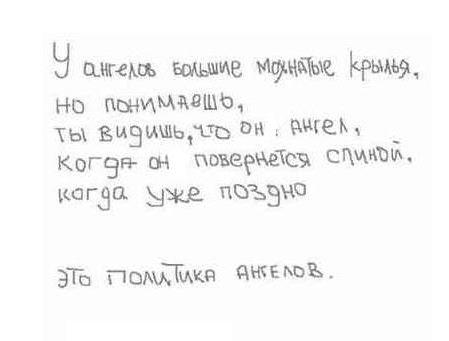 У ангелов большие мохнатые крылья,
но понимаешь,
ты видишь, что он ангел,
когда он повернется спиной.
когда уже поздно
это политика ангелов.